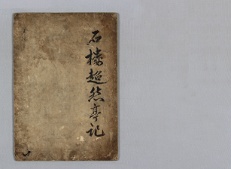 石樓超然亭記